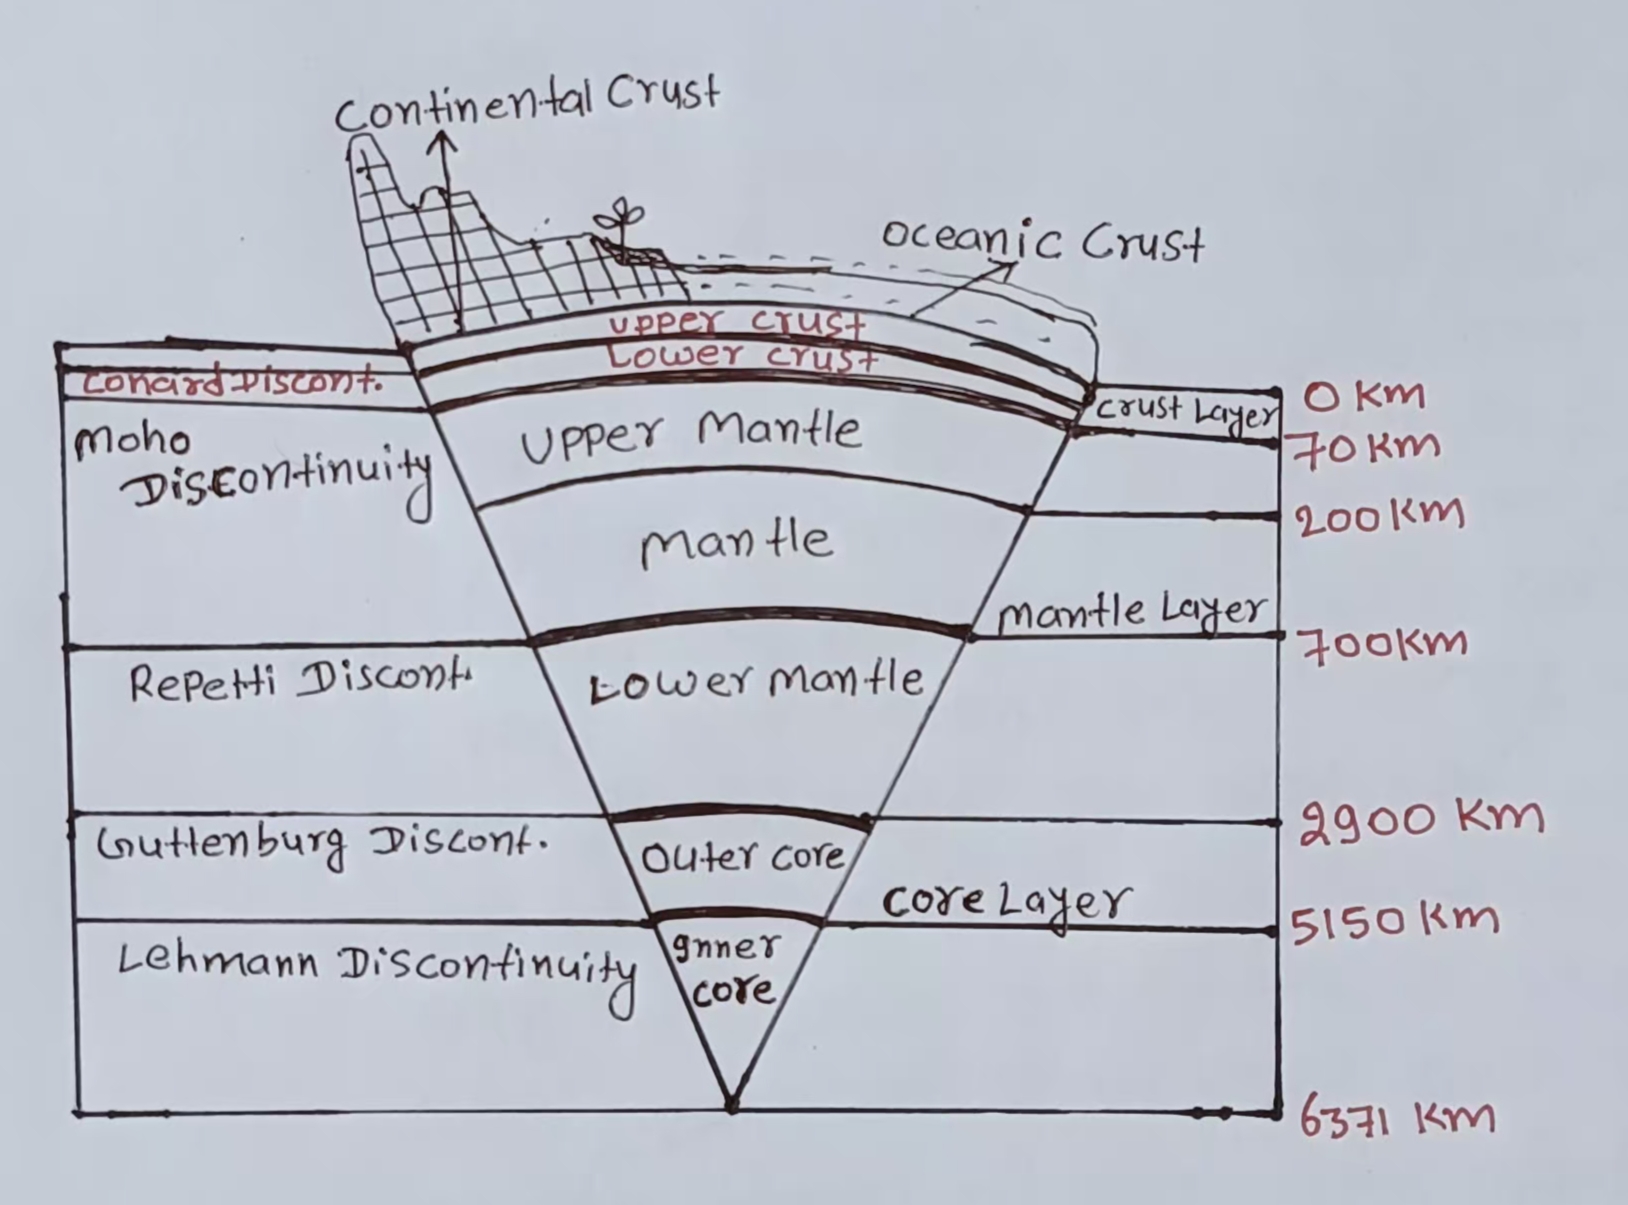 Continental Crust
Oceanic Crust
upper crust
Lower crust
Conard Discont.
Crust Layer
0 Km
Moho
Discontinuity
Upper Mantle
70 Km
200 Km
Mantle
Mantle Layer
700 Km
Repetti Discont.
Lower Mantle
2900 Km
Guttenburg Discont.
Outer core
Core Layer
5150 Km
Lehmann Discontinuity
Inner
core
6371 Km